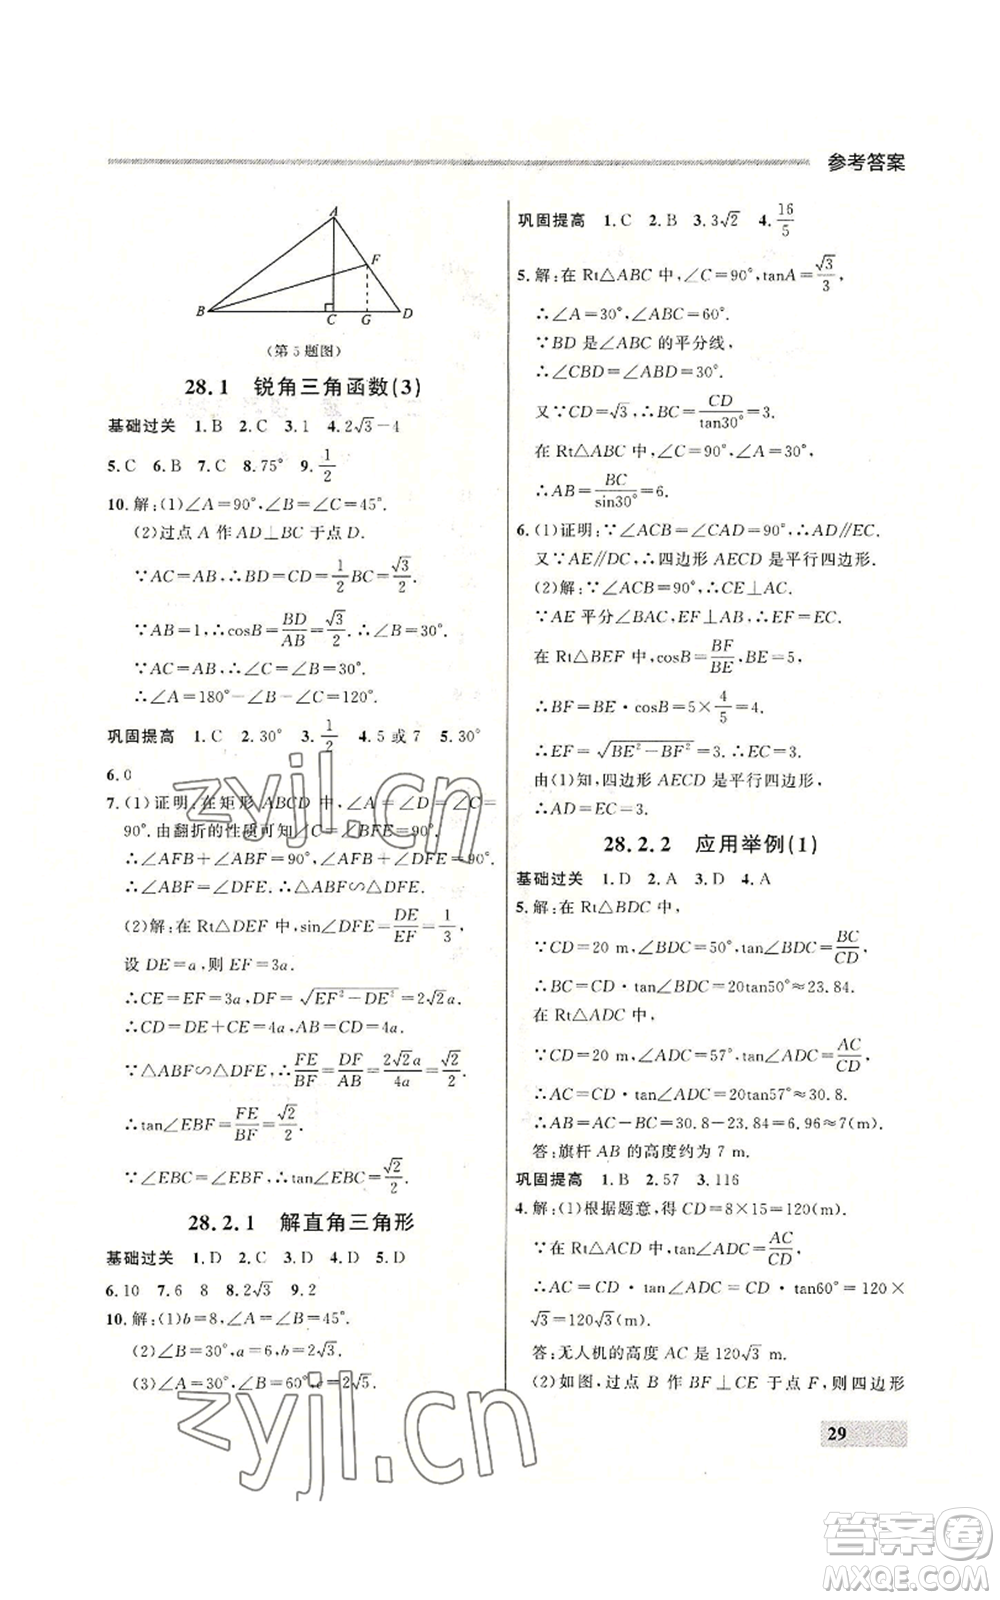 参考答案
A
F
B
C
G
D
(第5题图)
28.1 锐角三角函数(3)
基础过关 1.B 2.C 3.1 4.2√3-4
5.C 6.B 7.C 8.75° 9.1/2
10.解:(1)∠A=90°,∠B=∠C=45°.
(2)过点 A 作 AD⊥BC 于点 D.
∵AC=AB,∴BD=CD=1/2BC=√3/2.
∵AB=1,∴cosB=BD/AB=√3/2.∴∠B=30°.
∵AC=AB,∴∠C=∠B=30°.
∴∠A=180°-∠B-∠C=120°.
巩固提高 1.C 2.30° 3.1/2 4.5 或 7 5.30°
6.0
7.(1)证明:在矩形 ABCD 中,∠A=∠D=∠C=
90°.由翻折的性质可知∠C=∠BFE=90°.
∴∠AFB+∠ABF=90°,∠AFB+∠DFE=90°.
∴∠ABF=∠DFE.∴△ABF∽△DFE.
(2)解:在 Rt△DEF 中,sin∠DFE=DE/EF=1/3,
设 DE=a,则 EF=3a.
∴CE=EF=3a,DF=√(EF²-DE²)=2√2a.
∴CD=DE+CE=4a,AB=CD=4a.
∵△ABF∽△DFE,∴FE/BF=DF/AB=2√2a/4a=√2/2.
∴tan∠EBF=FE/BF=√2/2.
∵∠EBC=∠EBF,∴tan∠EBC=√2/2.
28.2.1 解直角三角形
基础过关 1.D 2.C 3.D 4.D 5.D
6.10 7.6 8 8.2√3 9.2
10.解:(1)b=8,∠A=∠B=45°.
(2)∠B=30°,a=6,b=2√3.
(3)∠A=30°,∠B=60°,c=2√5.
巩固提高 1.C 2.B 3.3√2 4.16/5
5.解:在 Rt△ABC 中,∠C=90°,tanA=√3/3,
∴∠A=30°,∠ABC=60°.
∵BD 是∠ABC 的平分线,
∴∠CBD=∠ABD=30°.
又∵CD=√3,∴BC=CD/tan30°=3.
在 Rt△ABC 中,∠C=90°,∠A=30°,
∴AB=BC/sin30°=6.
6.(1)证明:∵∠ACB=∠CAD=90°,∴AD∥EC.
又∵AE∥DC,∴四边形 AECD 是平行四边形.
(2)解:∵∠ACB=90°,∴CE⊥AC.
∵AE 平分∠BAC,EF⊥AB,∴EF=EC.
在 Rt△BEF 中,cosB=BF/BE,BE=5,
∴BF=BE·cosB=5×4/5=4.
∴EF=√(BE²-BF²)=3.∴EC=EF=3.
由(1)知,四边形 AECD 是平行四边形,
∴AD=EC=3.
28.2.2 应用举例(1)
基础过关 1.D 2.A 3.D 4.A
5.解:在 Rt△BDC 中,
∵CD=20 m,∠BDC=50°,tan∠BDC=BC/CD,
∴BC=CD·tan∠BDC=20tan50°≈23.84.
在 Rt△ADC 中,
∵CD=20 m,∠ADC=57°,tan∠ADC=AC/CD,
∴AC=CD·tan∠ADC=20tan57°≈30.8.
∴AB=AC-BC=30.8-23.84=6.96≈7(m).
答:旗杆 AB 的高度约为 7 m.
巩固提高 1.B 2.57 3.116
4.解:(1)根据题意,得 CD=8×15=120(m).
∵在 Rt△ACD 中,tan∠ADC=AC/CD,
∴AC=CD·tan∠ADC=CD·tan60°=120×
√3=120√3(m).
答:无人机的高度 AC 是 120√3 m.
(2)如图,过点 B 作 BF⊥CE 于点 F,则四边形
29
zyjl.cn
zyjl.cn
答案卷
MXQE.COM